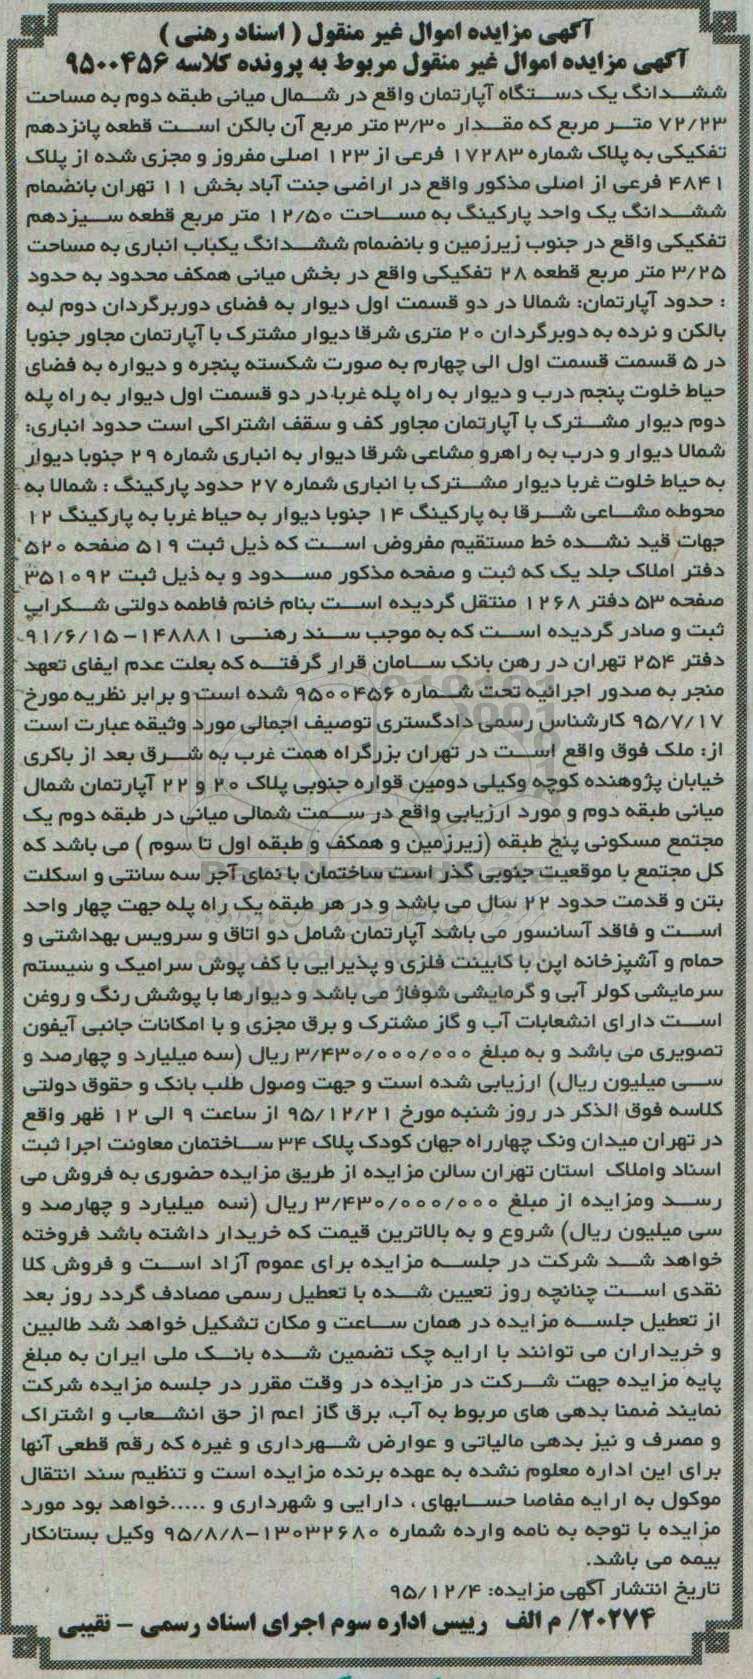 آگهی مزایده اموال غیر منقول ( اسناد رهنی )
آگهی مزایده اموال غیر منقول مربوط به پرونده کلاسه ۹۵۰۰۴۵۶
ششدانگ یک دستگاه آپارتمان واقع در شمال میانی طبقه دوم به مساحت
۷۲/۲۳ متر مربع که مقدار ۳/۳۰ متر مربع آن بالکن است قطعه پانزدهم
تفکیکی به پلاک شماره ۱۷۲۸۳ فرعی از ۱۲۳ اصلی مفروز و مجزی شده از پلاک
۴۸۴۱ فرعی از اصلی مذکور واقع در اراضی جنت آباد بخش ۱۱ تهران بانضمام
ششدانگ یک واحد پارکینگ به مساحت ۱۲/۵۰ متر مربع قطعه سیزدهم
تفکیکی واقع در جنوب زیرزمین و بانضمام ششدانگ یکباب انباری به مساحت
۳/۲۵ متر مربع قطعه ۲۸ تفکیکی واقع در بخش میانی همکف محدود به حدود
: حدود آپارتمان: شمالا در دو قسمت اول دیوار به فضای دوربرگردان دوم لبه
بالکن و نرده به دوبرگردان ۲۰ متری شرقا دیوار مشترک با آپارتمان مجاور جنوبا
در ۵ قسمت قسمت اول الی چهارم به صورت شکسته پنجره و دیواره به فضای
حیاط خلوت پنجم درب و دیوار به راه پله غربا در دو قسمت اول دیوار به راه پله
دوم دیوار مشترک با آپارتمان مجاور کف و سقف اشتراکی است حدود انباری:
شمالا دیوار و درب به راهرو مشاعی شرقا دیوار به انباری شماره ۲۹ جنوبا دیوار
به حیاط خلوت غربا دیوار مشترک با انباری شماره ۲۷ حدود پارکینگ : شمالا به
محوطه مشاعی شرقا به پارکینگ ۱۴ جنوبا دیوار به حیاط غربا به پارکینگ ۱۲
جهات قید نشده خط مستقیم مفروض است که ذیل ثبت ۵۱۹ صفحه ۵۲۰
دفتر املاک جلد یک که ثبت و صفحه مذکور مسدود و به ذیل ثبت ۳۵۱۰۹۲
صفحه ۵۳ دفتر ۱۲۶۸ منتقل گردیده است بنام خانم فاطمه دولتی شکراب
ثبت و صادر گردیده است که به موجب سند رهنی ۱۴۸۸۸۱-۹۱/۶/۱۵
دفتر ۲۵۴ تهران در رهن بانک سامان قرار گرفته که بعلت عدم ایفای تعهد
منجر به صدور اجرائیه تحت شماره ۹۵۰۰۴۵۶ شده است و برابر نظریه مورخ
۹۵/۷/۱۷ کارشناس رسمی دادگستری توصیف اجمالی مورد وثیقه عبارت است
از: ملک فوق واقع است در تهران بزرگراه همت غرب به شرق بعد از باکری
خیابان پژوهنده کوچه وکیلی دومین قواره جنوبی پلاک ۲۰ و ۲۲ آپارتمان شمال
میانی طبقه دوم و مورد ارزیابی واقع در سمت شمالی میانی در طبقه دوم یک
مجتمع مسکونی پنج طبقه (زیرزمین و همکف و طبقه اول تا سوم ) می باشد که
کل مجتمع با موقعیت جنوبی گذر است ساختمان با نمای آجر سه سانتی و اسکلت
بتن و قدمت حدود ۲۲ سال می باشد و در هر طبقه یک راه پله جهت چهار واحد
است و فاقد آسانسور می باشد آپارتمان شامل دو اتاق و سرویس بهداشتی و
حمام و آشپزخانه اپن با کابینت فلزی و پذیرایی با کف پوش سرامیک و سیستم
سرمایشی کولر آبی و گرمایشی شوفاژ می باشد و دیوارها با پوشش رنگ و روغن
است دارای انشعابات آب و گاز مشترک و برق مجزی و با امکانات جانبی آیفون
تصویری می باشد و به مبلغ ۳/۴۳۰/۰۰۰/۰۰۰ ریال (سه میلیارد و چهارصد و
سی میلیون ریال) ارزیابی شده است و جهت وصول طلب بانک و حقوق دولتی
کلاسه فوق الذکر در روز شنبه مورخ ۹۵/۱۲/۲۱ از ساعت ۹ الی ۱۲ ظهر واقع
در تهران میدان ونک چهارراه جهان کودک پلاک ۳۴ ساختمان معاونت اجرا ثبت
اسناد واملاک استان تهران سالن مزایده از طریق مزایده حضوری به فروش می
رسد ومزایده از مبلغ ۳/۴۳۰/۰۰۰/۰۰۰ ریال (سه میلیارد و چهارصد و
سی میلیون ریال) شروع و به بالاترین قیمت که خریدار داشته باشد فروخته
خواهد شد شرکت در جلسه مزایده برای عموم آزاد است و فروش کلا
نقدی است چنانچه روز تعیین شده با تعطیل رسمی مصادف گردد روز بعد
از تعطیل جلسه مزایده در همان ساعت و مکان تشکیل خواهد شد طالبین
و خریداران می توانند با ارایه چک تضمین شده بانک ملی ایران به مبلغ
پایه مزایده جهت شرکت در مزایده در وقت مقرر در جلسه مزایده شرکت
نمایند ضمنا بدهی های مربوط به آب، برق گاز اعم از حق انشعاب و اشتراک
و مصرف و نیز بدهی مالیاتی و عوارض شهرداری و غیره که رقم قطعی آنها
برای این اداره معلوم نشده به عهده برنده مزایده است و تنظیم سند انتقال
موکول به ارایه مفاصا حسابهای ، دارایی و شهرداری و .....خواهد بود مورد
مزایده با توجه به نامه وارده شماره ۱۳۰۳۲۶۸۰-۹۵/۸/۸ وکیل بستانکار
بیمه می باشد.
تاریخ انتشار آگهی مزایده: ۹۵/۱۲/۴
۲۰۲۷۴/ م الف رییس اداره سوم اجرای اسناد رسمی - نقیبی